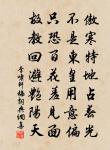 傲寒特地占春光
不是東皇用意偏
只恐百花羞見面
故教回避艷陽天
李嘯村梅詞與網喜